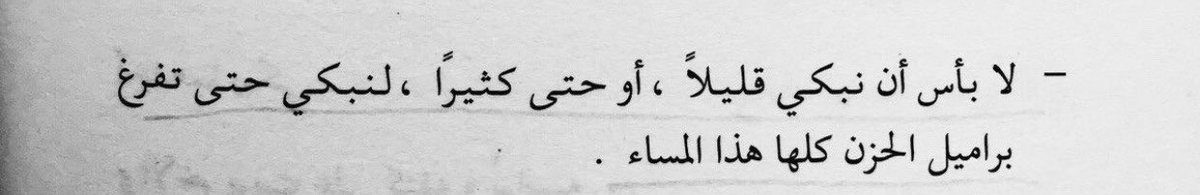 – لا بأس أن نبكي قليلاً ، أو حتى كثيرًا ، لنبكي حتى تفرغ
براميل الحزن كلها هذا المساء .